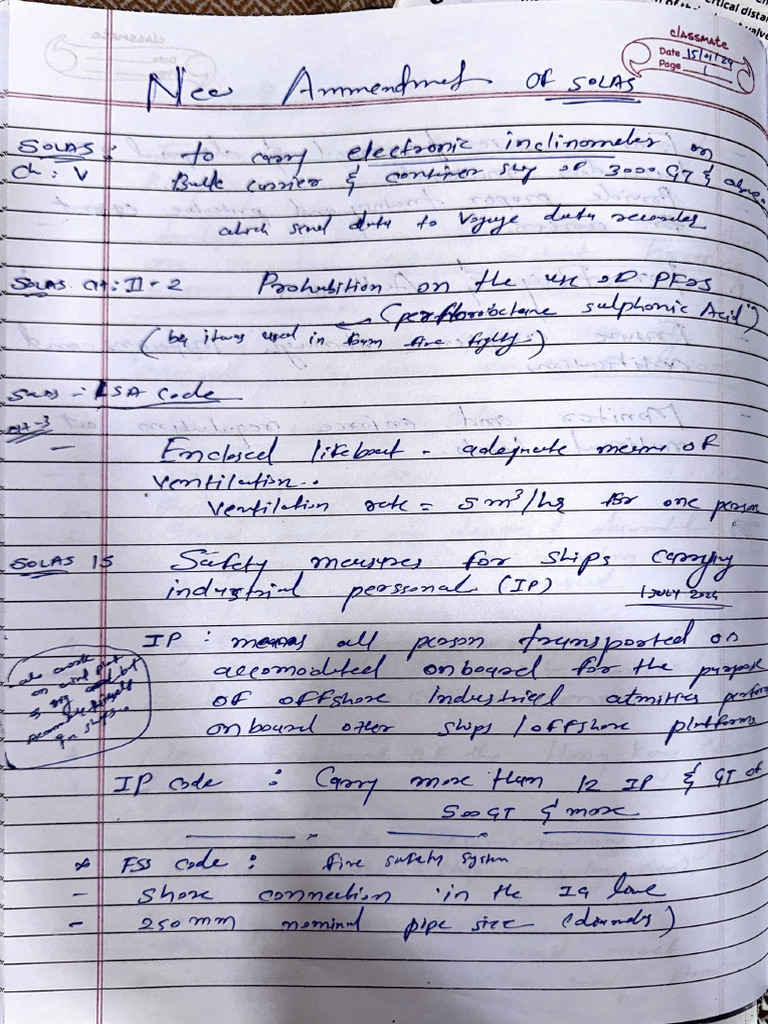 critical dista
valve
classmate
Date 15/01/24
Page 1
New Ammendment OF SOLAS
SOLAS: to carry electronic inclinometer on
Ch: V Bulk carrier & container ship of 3000 GT & above
which send data to Voyage data recorder
SOLAS CH: II-2 Prohibition on the use OF PFOS
(perfluoroctane sulphonic Acid)
(being used in foam fire fight.)
SOLAS - LSA Code
CH-3
- Enclosed lifeboat - adequate means of
ventilation..
Ventilation rate = 5 m³/hr for one person
SOLAS 15 Safety measures for ships carrying
industrial perssonal (IP) 1 JULY 2024
IP : means all person transported or
accomodated onboard for the purpose
OF offshore industrial activities perform
onboard other ships / offshore platforms
IP code : Carry more than 12 IP & GT of
500 GT & more
* FSS code : fire safety system
- Shore connection in the IG line
- 250 mm nominal pipe size